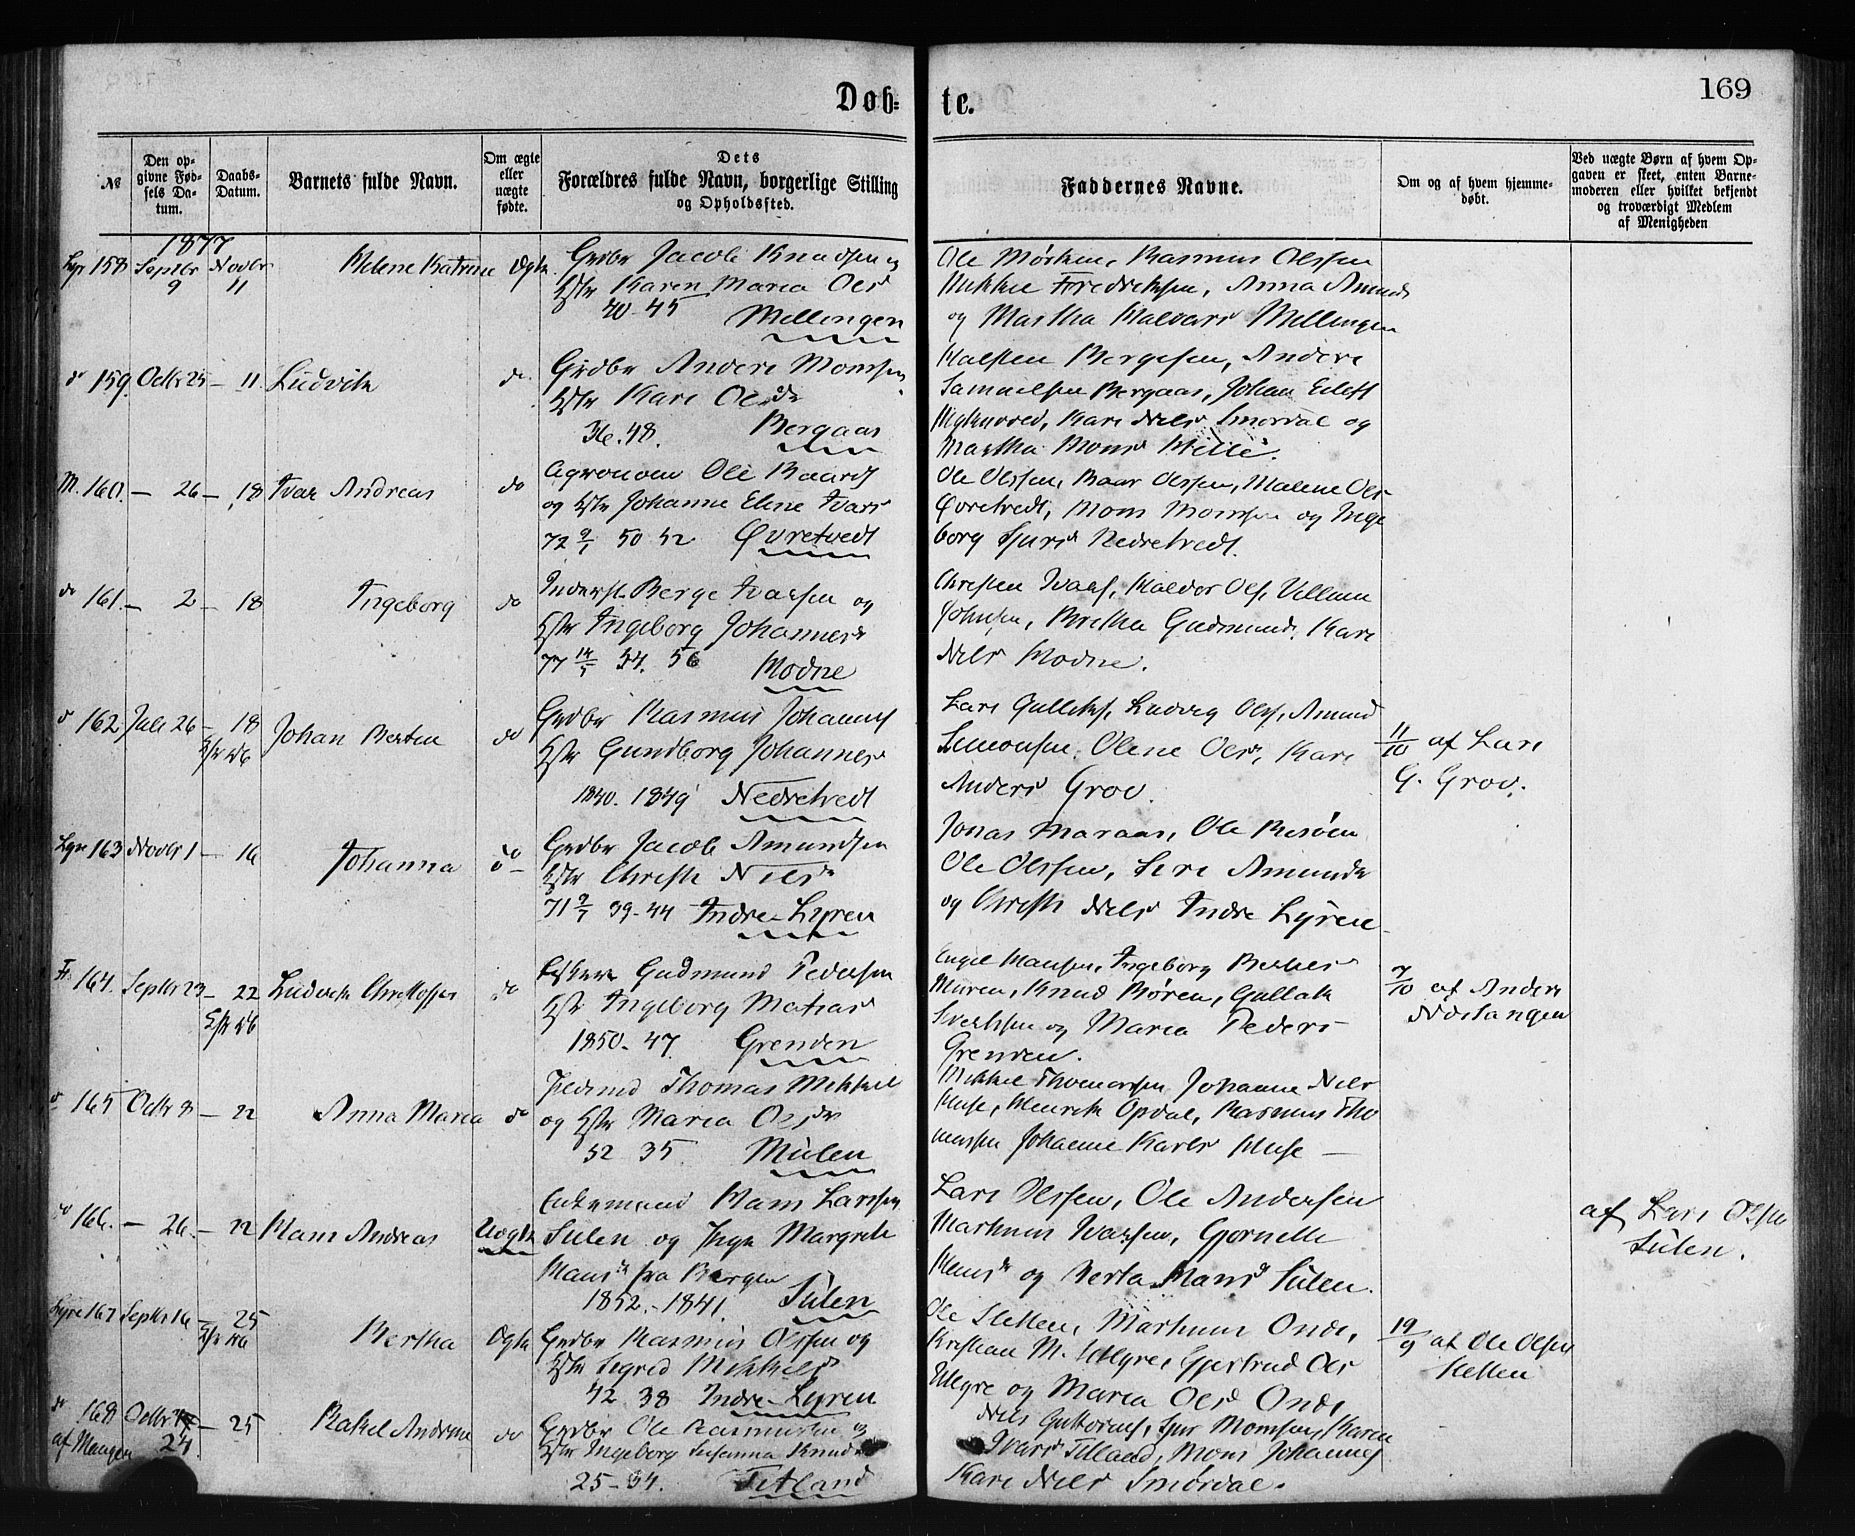 Døb=
te.
169
№
Den op-
givne Fød-
sels Da-
tum.
Daabs-
Datum.
Barnets fulde Navn.
Om ægte
eller
uægte
fødte.
Dets
Forældres fulde Navn, borgerlige Stilling
og Opholdssted.
Faddernes Navne.
Om og af hvem hjemme-
døbt.
Ved uægte Børn af hvem Op-
gaven er skeet, enten Barne-
moderen eller hvilket bekjendt
og troværdigt Medlem
af Menigheden
1877
158 Septbr 9 Novbr 11 Helene Katrine Ægte
Grdbr Jacob Knudsen og
Karen Maria Olsd
40-45 Mellingen
Rasmus Olssen
Mikkel Fredriksen, Anna Amunds
og Martha Halvars Mellingen
159 Octbr 25 — 11 Ludvik do
Grdbr Anders Monssen
Kari Olsdr
36. 48. Bergaas
Halsten Bergesen, Anders
Samuelsen Bergaas, Johan
Kari Nels Smørdal og
Martha Mons Hille.
M. 160. — 26 — 18 Ivar Andreas do
Agronom Ole Baards
og Johanne Elene Ivars
72 50 52 Øvretvedt
Ole Olssen, Baar Olssen, Malene Ols
Øvretvedt, Mons Monssen og Inge
borg Sjursd Nedretvedt.
do 161. — 2 — 18 Ingeborg do
Inderst Berge Ivarsen og
Ingeborg Johannesdr
77 14/5 54. 56 Hodne
Christen Ivars, Haldor Ols, Villum
Johnsen, Britha Gudmunds, Kari
Nels Hodne.
162 Juli 26 — 18 Johan Bertin do
Grdbr Rasmus Johanns
Gundborg Johannes
1840. 1849 Nedretvedt
Lars Gulleks, Ludvig Ols, Amund
Simonsen, Olene Ols, Kari
Anders Grov.
11/10 af Lars
G. Grov.
163 Novbr 1 — 16 Johanna do
Grdbr Jacob Amundsen
Christi Nelsdr
71 39-44 Indre-Lyren
Jonas Maraas, Ole Risøen
Ole Olssen, Siri Amunds
og Christi Nels Indre Lyren
164. Septbr 23 — 22 Ludvik Christoffer do
Fisker Gudmund Pedersen
Ingeborg Matias
1850-47 Grenden
Engel Hansen, Ingeborg
Knud Børen, Gullak
og Maria Peders
Grenden.
7/10 af Anders
165 Octbr 8 — 22 Anna Maria do
Thomas Mikkel
og Maria Olsdr
52 35 Mulen
Mikkel Thomassen Johanne Nels
Henrik Opdal, Rasmus Tho
massen Johanne Karls
166. — 26. — 22 Hans Andreas Uægte
Enkemand Hans Larssen
Sulen og Inga Margrete
Hansdr fra Bergen
1852.-1841. Sulen
Lars Olssen, Ole Andersen
Markus Ivarsen, Gjørnelle
Hansdr og Berta Hansdr Sulen.
af Lars
Sulen.
167 Septbr 16 — 25 Bertha Ægte
Grdbr Rasmus Olssen og
Segrid Mikkelsdr
42 38 Indre Lyren
Ole Sletten, Markus
Kristian M. Gjertrud Ols
og Maria Olsd
19/9 af Ole Olsen
Sletten
168 Octbr 24. — 25 Rakel Andrine do
af Mangen
Grdbr Ole Rasmussen og
Ingeborg Susanna Knuds
25-34. Titland
Nils Guttorms, Sjur Monssen, Karen
Ivars Titland, Mons Johannes
Kari Nels Smørdal.